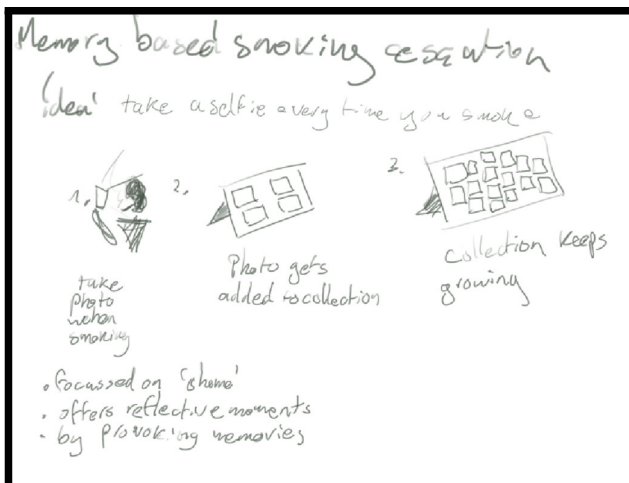 Memory based smoking cessation
'idea' take a selfie every time you smoke
1.
take
photo
when
smoking
2.
Photo gets
added to collection
3.
Collection keeps
growing
• focussed on 'shame'
• offers reflective moments
• by provoking memories